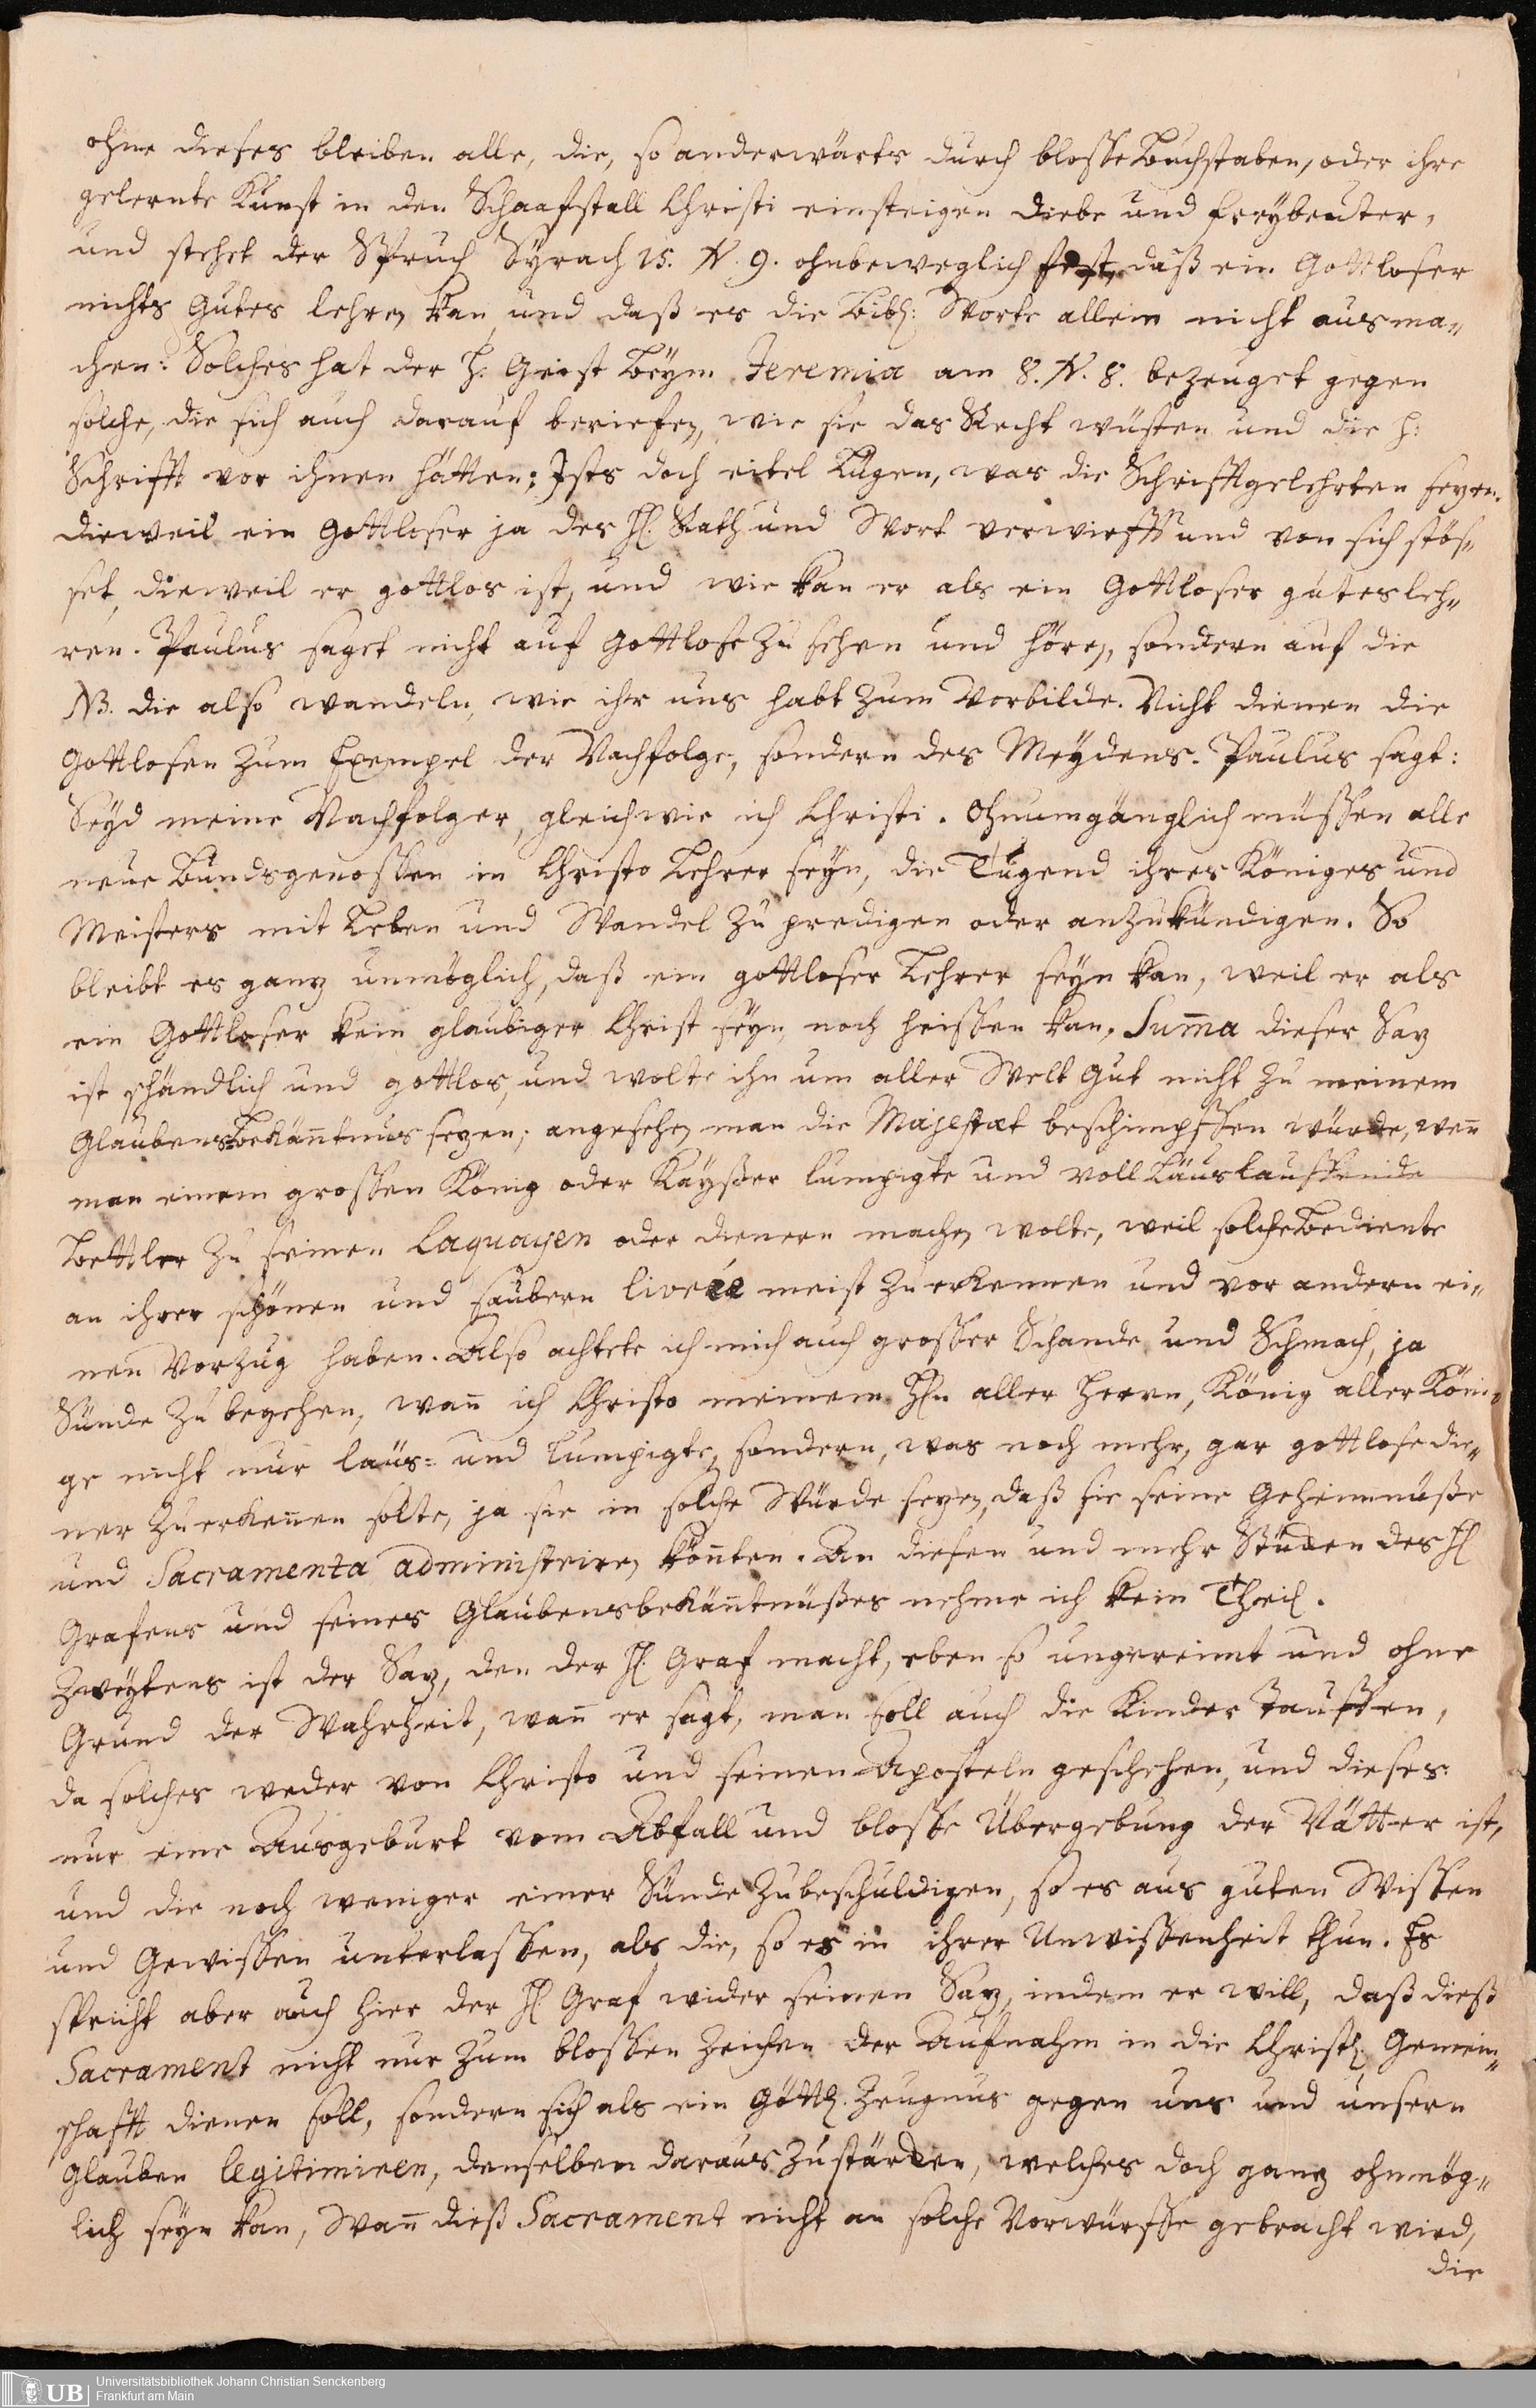 ohne dieses bleiben alle, die, so anderwärts durch blosse Buchstaben, oder ihre
gelernte Kunst in den Schaafstall Christi einsteigen diebe und freybeuter,
und stehet der Spruch Syrach 15. V. 9. ohnbeweglich fest, daß ein Gottloser
nichts Gutes lehren kan, und daß es die Bibl: Worte allein nicht ausma„
chen: Solches hat der H. Geist beym Jeremia am 8. V. 8. bezeuget gegen
solche, die sich auch darauf beriefen, wie sie das Recht wüsten und die H:
Schrifft vor ihnen hätten; Ists doch eitel Lügen, was die Schrifftgelehrten sezen.
dieweil ein Gottloser ja des H. Rath und Wort verwirfft und von sich stös„
set, dieweil er gottlos ist, und wie kan er als ein Gottloser gutes leh„
ren. Paulus saget nicht auf Gottlose zu sehen und hören, sondern auf die
NB. die also wandeln, wie ihr uns habt zum Vorbilde. Nicht dienen die
Gottlosen zum Exempel der Nachfolge, sondern des Meydens. Paulus sagt:
Seyd meine Nachfolger, gleichwie ich Christi. Ohnumgänglich müssen alle
neue Bundsgenossen in Christo Lehrer seyn, die Tugend ihres Königes und
Meisters mit Leben und Wandel zu predigen oder anzukündigen. So
bleibt es ganz unmöglich, daß ein gottloser Lehrer seyn kan, weil er als
ein Gottloser kein glaubiger Christ seyn, noch heissen kan, Suma dieser Saz
ist schändlich und gottlos, und wolte ihn um aller Welt Gut nicht zu meinem
Glaubensbekäntnus sezen; angesehen man die Majestæt beschimpffen würde, wen
man einem grossen König oder Kayßer lumpigte und voll Läus lauffende
Bettler zu seinen Laquayen oder dienern machen wolte, weil solche Bediente
an ihrer schönen und saubern livrée meist zu erkennen und vor andern ei„
nen Vorzug haben. Also achtete ich mich auch grosser Schande und Schmach, ja
Sünde zu begehen, wan ich Christo meinem Hn aller Herrn, König aller Köni„
ge nicht nur läus= und lumpigte, sondern, was noch mehr, gar gottlose die„
ner zu erkenen solte, ja sie in solche Würde sezen, daß sie seine Geheimnüße
und Sacramenta administriren könten. An diesen und mehr Stücken des H
Grafens und seines Glaubensbekäntnüßes nehme ich kein Theil.
Zweytens ist der Saz, den der H. Graf macht, eben so ungereimt und ohne
Grund der Wahrheit, wan er sagt, man soll auch die Kinder tauffen,
da solches weder von Christo und seinen Aposteln geschehen, und dieses
nur eine Ausgeburt vom Abfall und blosse Übergebung der Vätter ist,
und die noch weniger einer Sünde zubeschuldigen, so es aus guten Wissen
und Gewissen unterlassen, als die, so es in ihrer Unwissenheit thun. Es
spricht aber auch hier der H Graf wider seinen Saz, indem er will, daß dieß
Sacrament nicht nur zum blossen Zeichen der Aufnahm in die Christl. Gemein„
schafft dienen soll, sondern sich als ein Göttl. Zeugnus gegen uns und unsern
Glauben legitimiren, denselben daraus zu stärcken, welches doch ganz ohnmög„
lich seyn kan, Wan dieß Sacrament nicht an solche Vorwürffe gebracht wird,
die
UB Universitätsbibliothek Johann Christian Senckenberg
Frankfurt am Main